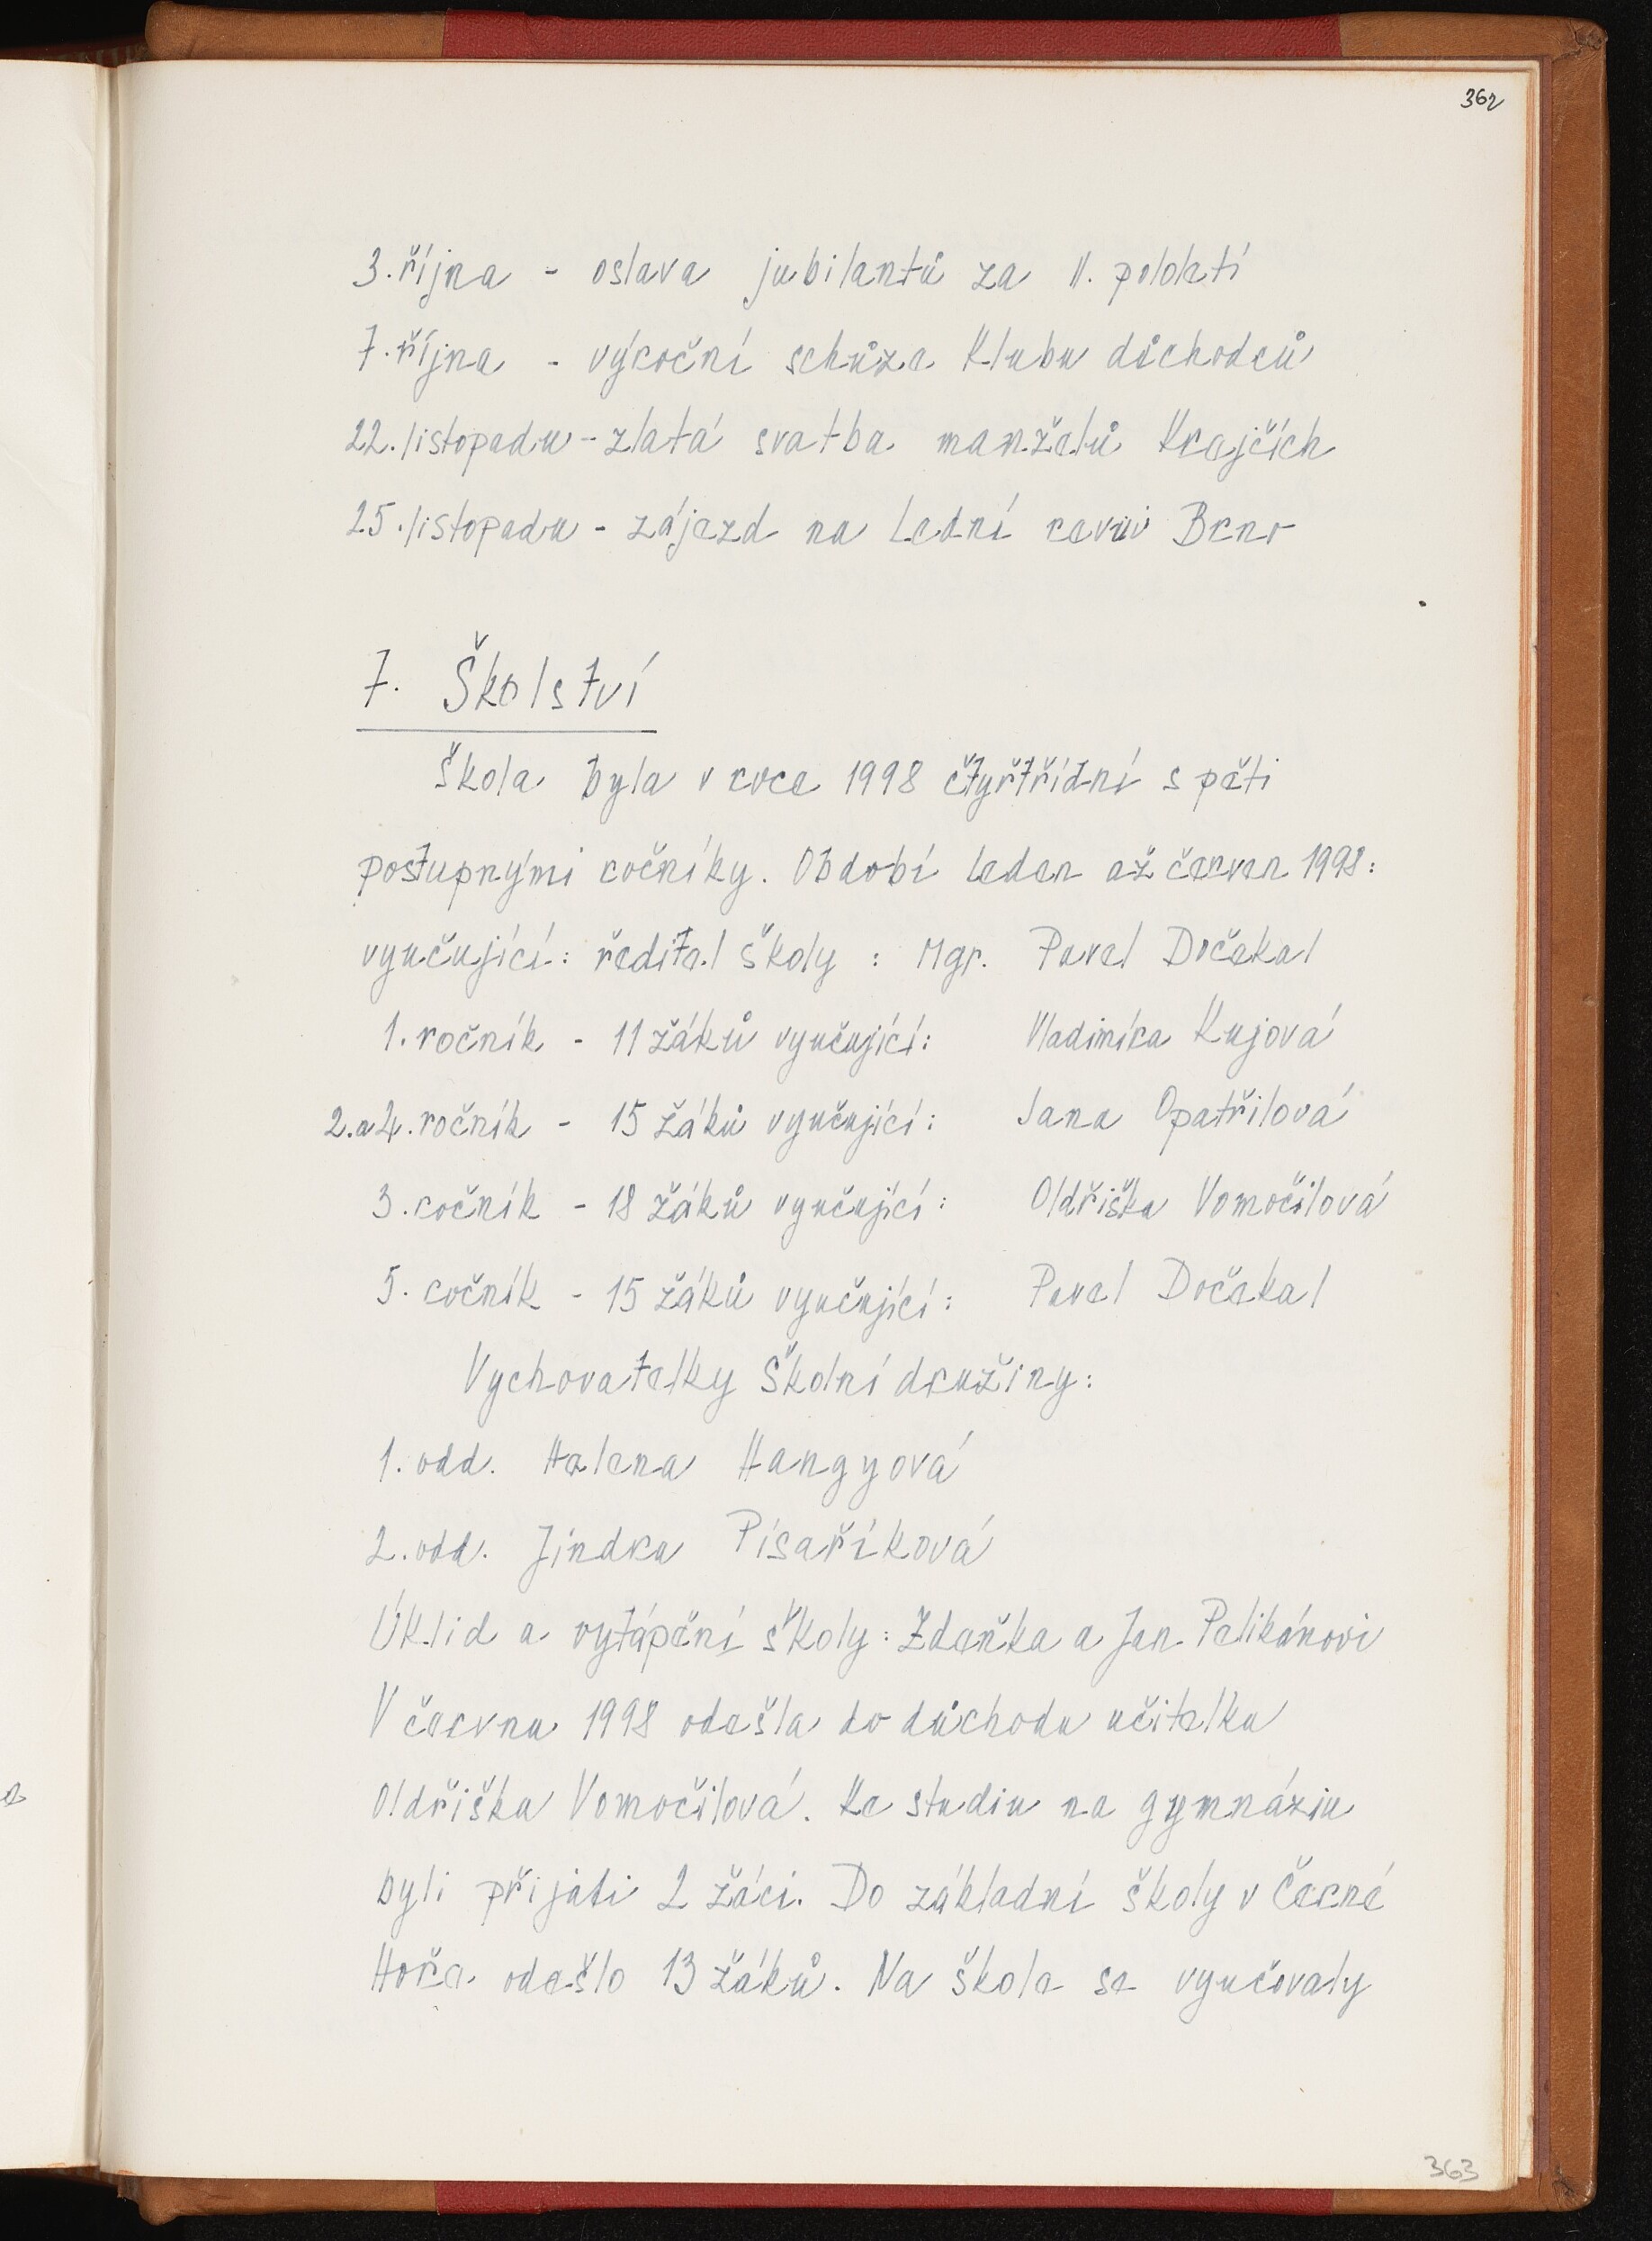 362
3. října - oslava jubilantů za II. pololetí
7. října - výroční schůze Klubu důchodců
22. listopadu - zlatá svatba manželů Krejčích
25. listopadu - zájezd na Lední revui Brno
7. Školství
Škola byla v roce 1998 čtyřtřídní s pěti
postupnými ročníky. Období leden až červen 1998:
vyučující: ředitel školy : Mgr. Pavel Dočekal
1. ročník - 11 žáků vyučující: Vladimíra Kujová
2. a 4. ročník - 15 žáků vyučující: Jana Opatřilová
3. ročník - 18 žáků vyučující: Oldřiška Vomočilová
5. ročník - 15 žáků vyučující: Pavel Dočekal
Vychovatelky školní družiny:
1. odd. Helena Hangyová
2. odd. Jindra Písaříková
Úklid a vytápění školy: Zdeňka a Jan Pelikánovi
V červnu 1998 odešla do důchodu učitelka
Oldřiška Vomočilová. Ke studiu na gymnáziu
byli přijati 2 žáci. Do základní školy v Černé
Hoře odešlo 13 žáků. Na škole se vyučovaly
363